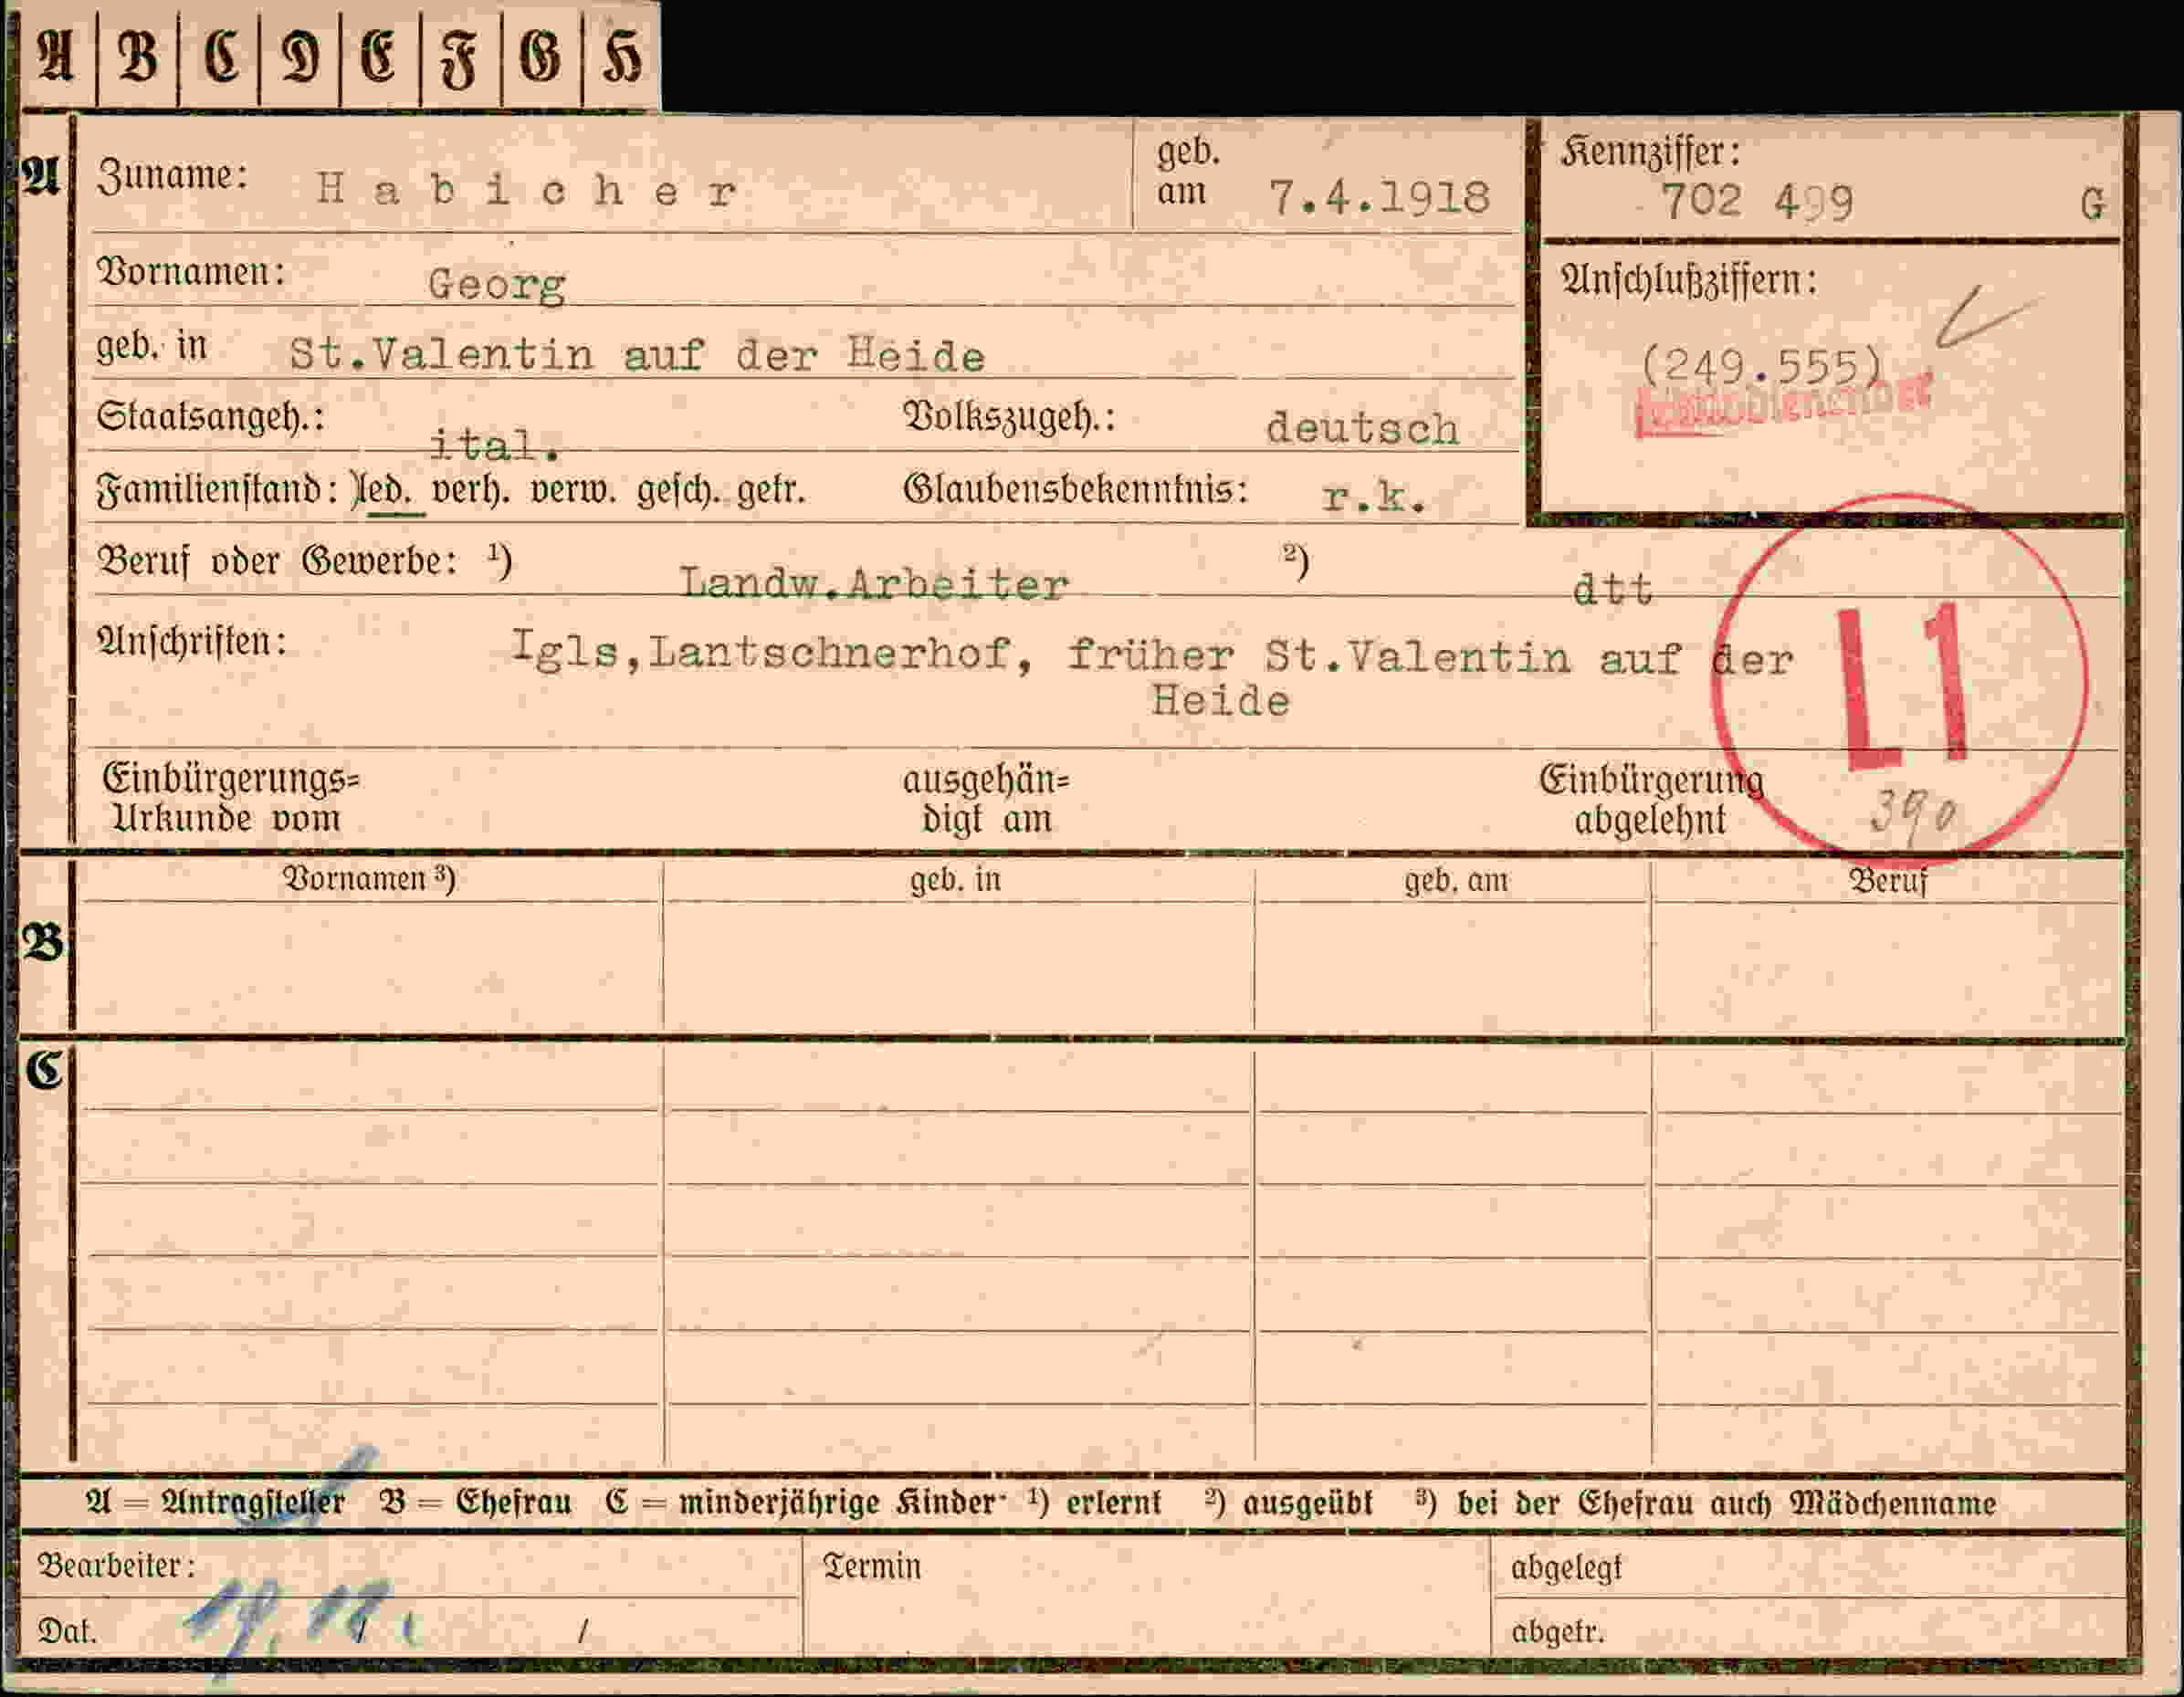 A B C D E F G H
A Zuname: Habicher geb. am 7.4.1918 Kennziffer: 702 499 G
Vornamen: Georg Anschlußziffern:
geb. in St.Valentin auf der Heide (249.555)
Staatsangeh.: ital. Volkszugeh.: deutsch
Familienstand: led. verh. verw. gesch. getr. Glaubensbekenntnis: r.k.
Beruf oder Gewerbe: ¹) Landw.Arbeiter ²) dtt
Anschriften: Igls,Lantschnerhof, früher St.Valentin auf der
Heide
L1
390
Einbürgerungs= ausgehän= Einbürgerung
Urkunde vom digt am abgelehnt
B Vornamen ³) geb. in geb. am Beruf
C
A = Antragsteller B = Ehefrau C = minderjährige Kinder ¹) erlernt ²) ausgeübt ³) bei der Ehefrau auch Mädchenname
Bearbeiter: Termin abgelegt
Dat. / / abgetr.